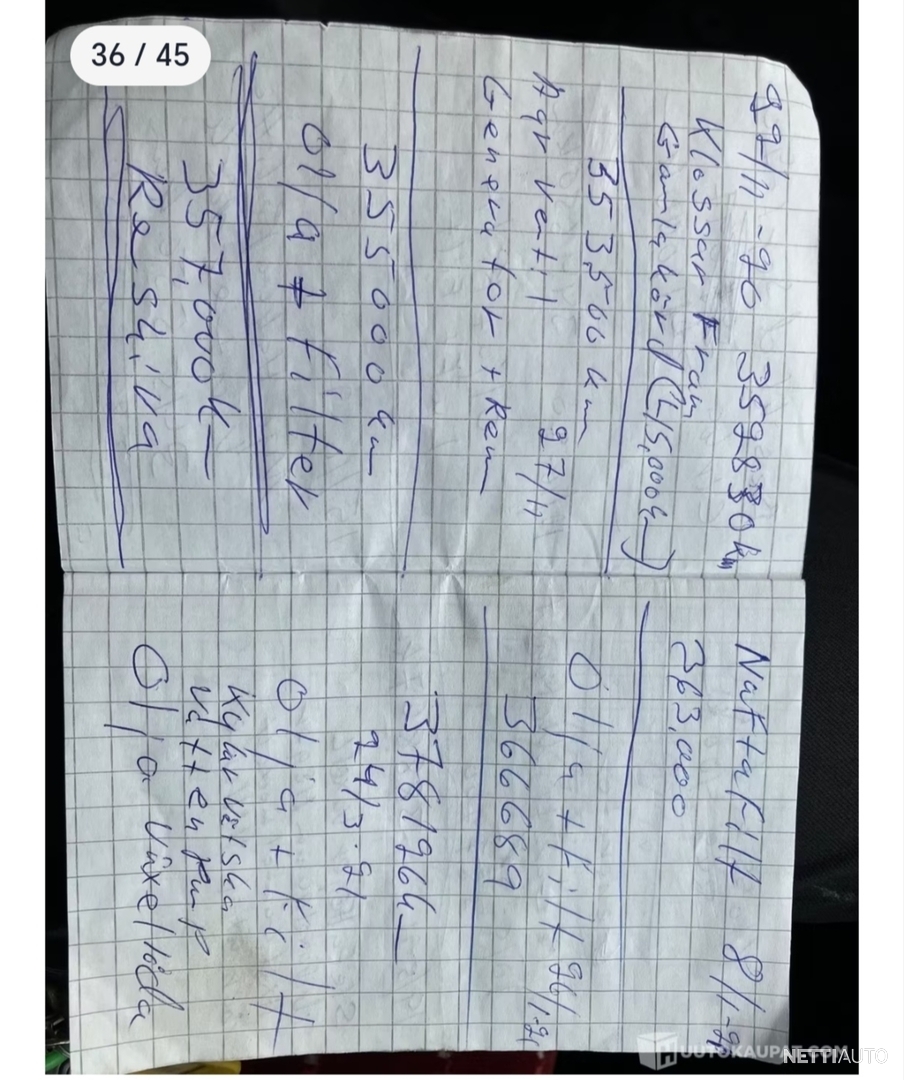 36 / 45
29/11-90 359830km
Klossar Fram
Gamla körl (45,000k)
353,500 km
Agr ventil 27/11
Generator + Rem
355000 km
Olja + filter
357,000k
Re skiva
Naftafilt 8/1-91
363,000
Olja + Filt 26/1-91
366689
378196k
24/3-91
Olja + Filt
Kylarvätska
Vattenpump
Olja Växellåda
HUUTOKAUPAT.COM
NETTIAUTO